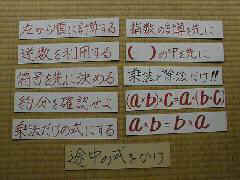 左から順に計算する
指数の計算を先に
逆数を利用する
( )の中を先に
符号を先に決める
乗法と除法だけ!!
約分を確認せよ
(a・b)・c=a・(b・c)
乗法だけの式にする
a・b=b・a
途中の式をかけ